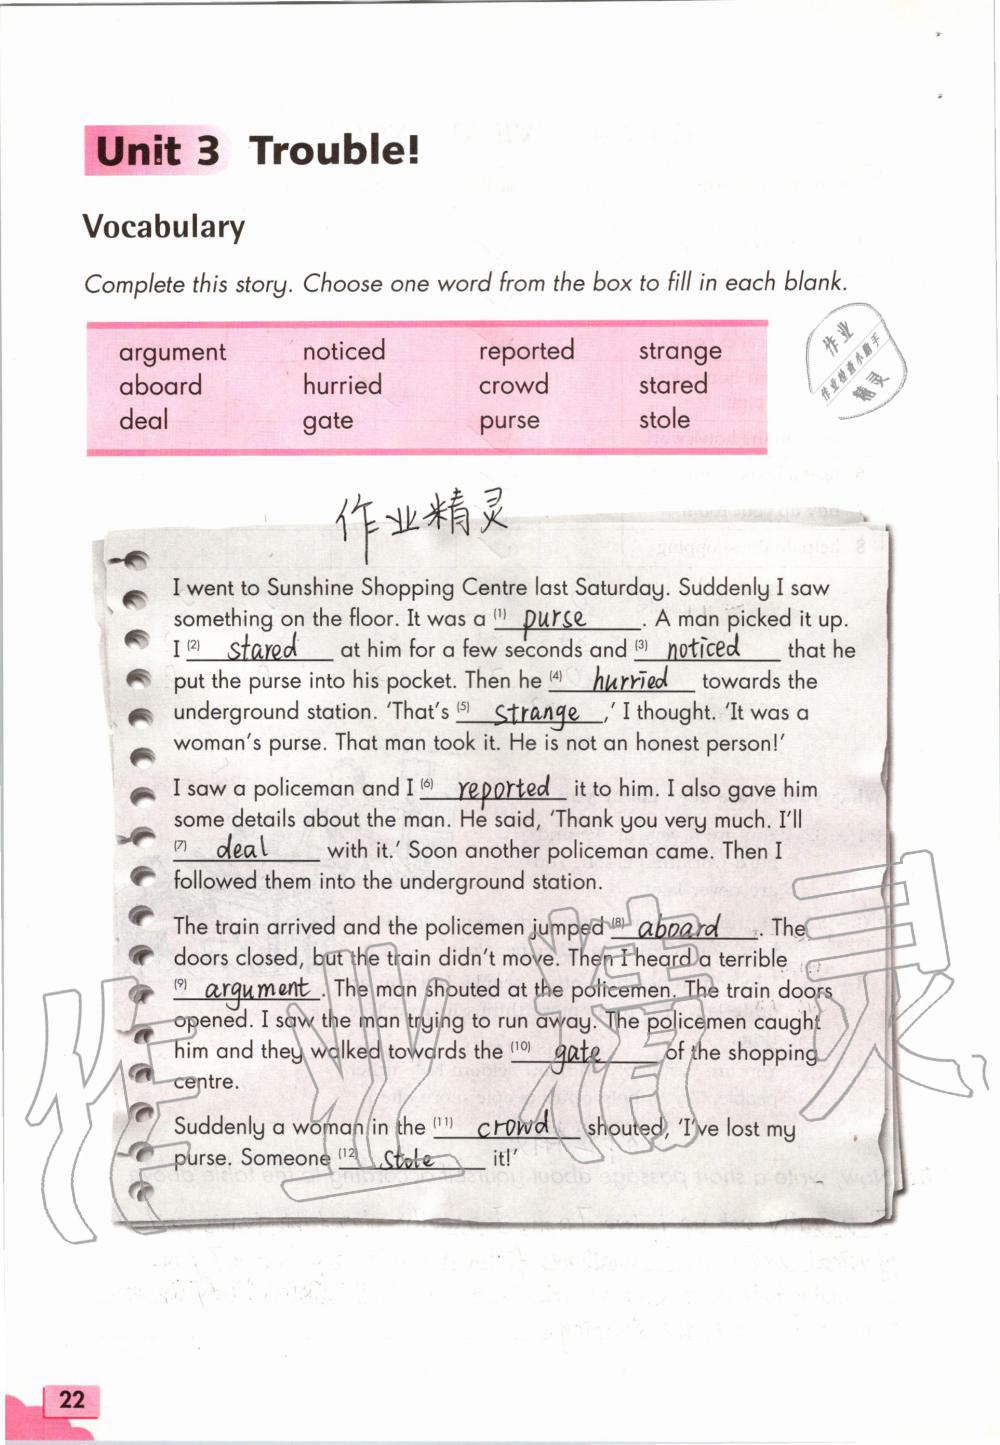 Unit 3 Trouble!
Vocabulary
Complete this story. Choose one word from the box to fill in each blank.
argument noticed reported strange
aboard hurried crowd stared
deal gate purse stole
作业
作业检查小助手
精灵
作业精灵
I went to Sunshine Shopping Centre last Saturday. Suddenly I saw
something on the floor. It was a (1) purse. A man picked it up.
I (2) stared at him for a few seconds and (3) noticed that he
put the purse into his pocket. Then he (4) hurried towards the
underground station. 'That's (5) strange,' I thought. 'It was a
woman's purse. That man took it. He is not an honest person!'
I saw a policeman and I (6) reported it to him. I also gave him
some details about the man. He said, 'Thank you very much. I'll
(7) deal with it.' Soon another policeman came. Then I
followed them into the underground station.
The train arrived and the policemen jumped (8) aboard. The
doors closed, but the train didn't move. Then I heard a terrible
(9) argument. The man shouted at the policemen. The train doors
opened. I saw the man trying to run away. The policemen caught
him and they walked towards the (10) gate of the shopping
centre.
Suddenly a woman in the (11) crowd shouted, 'I've lost my
purse. Someone (12) stole it!'
作业精灵
22